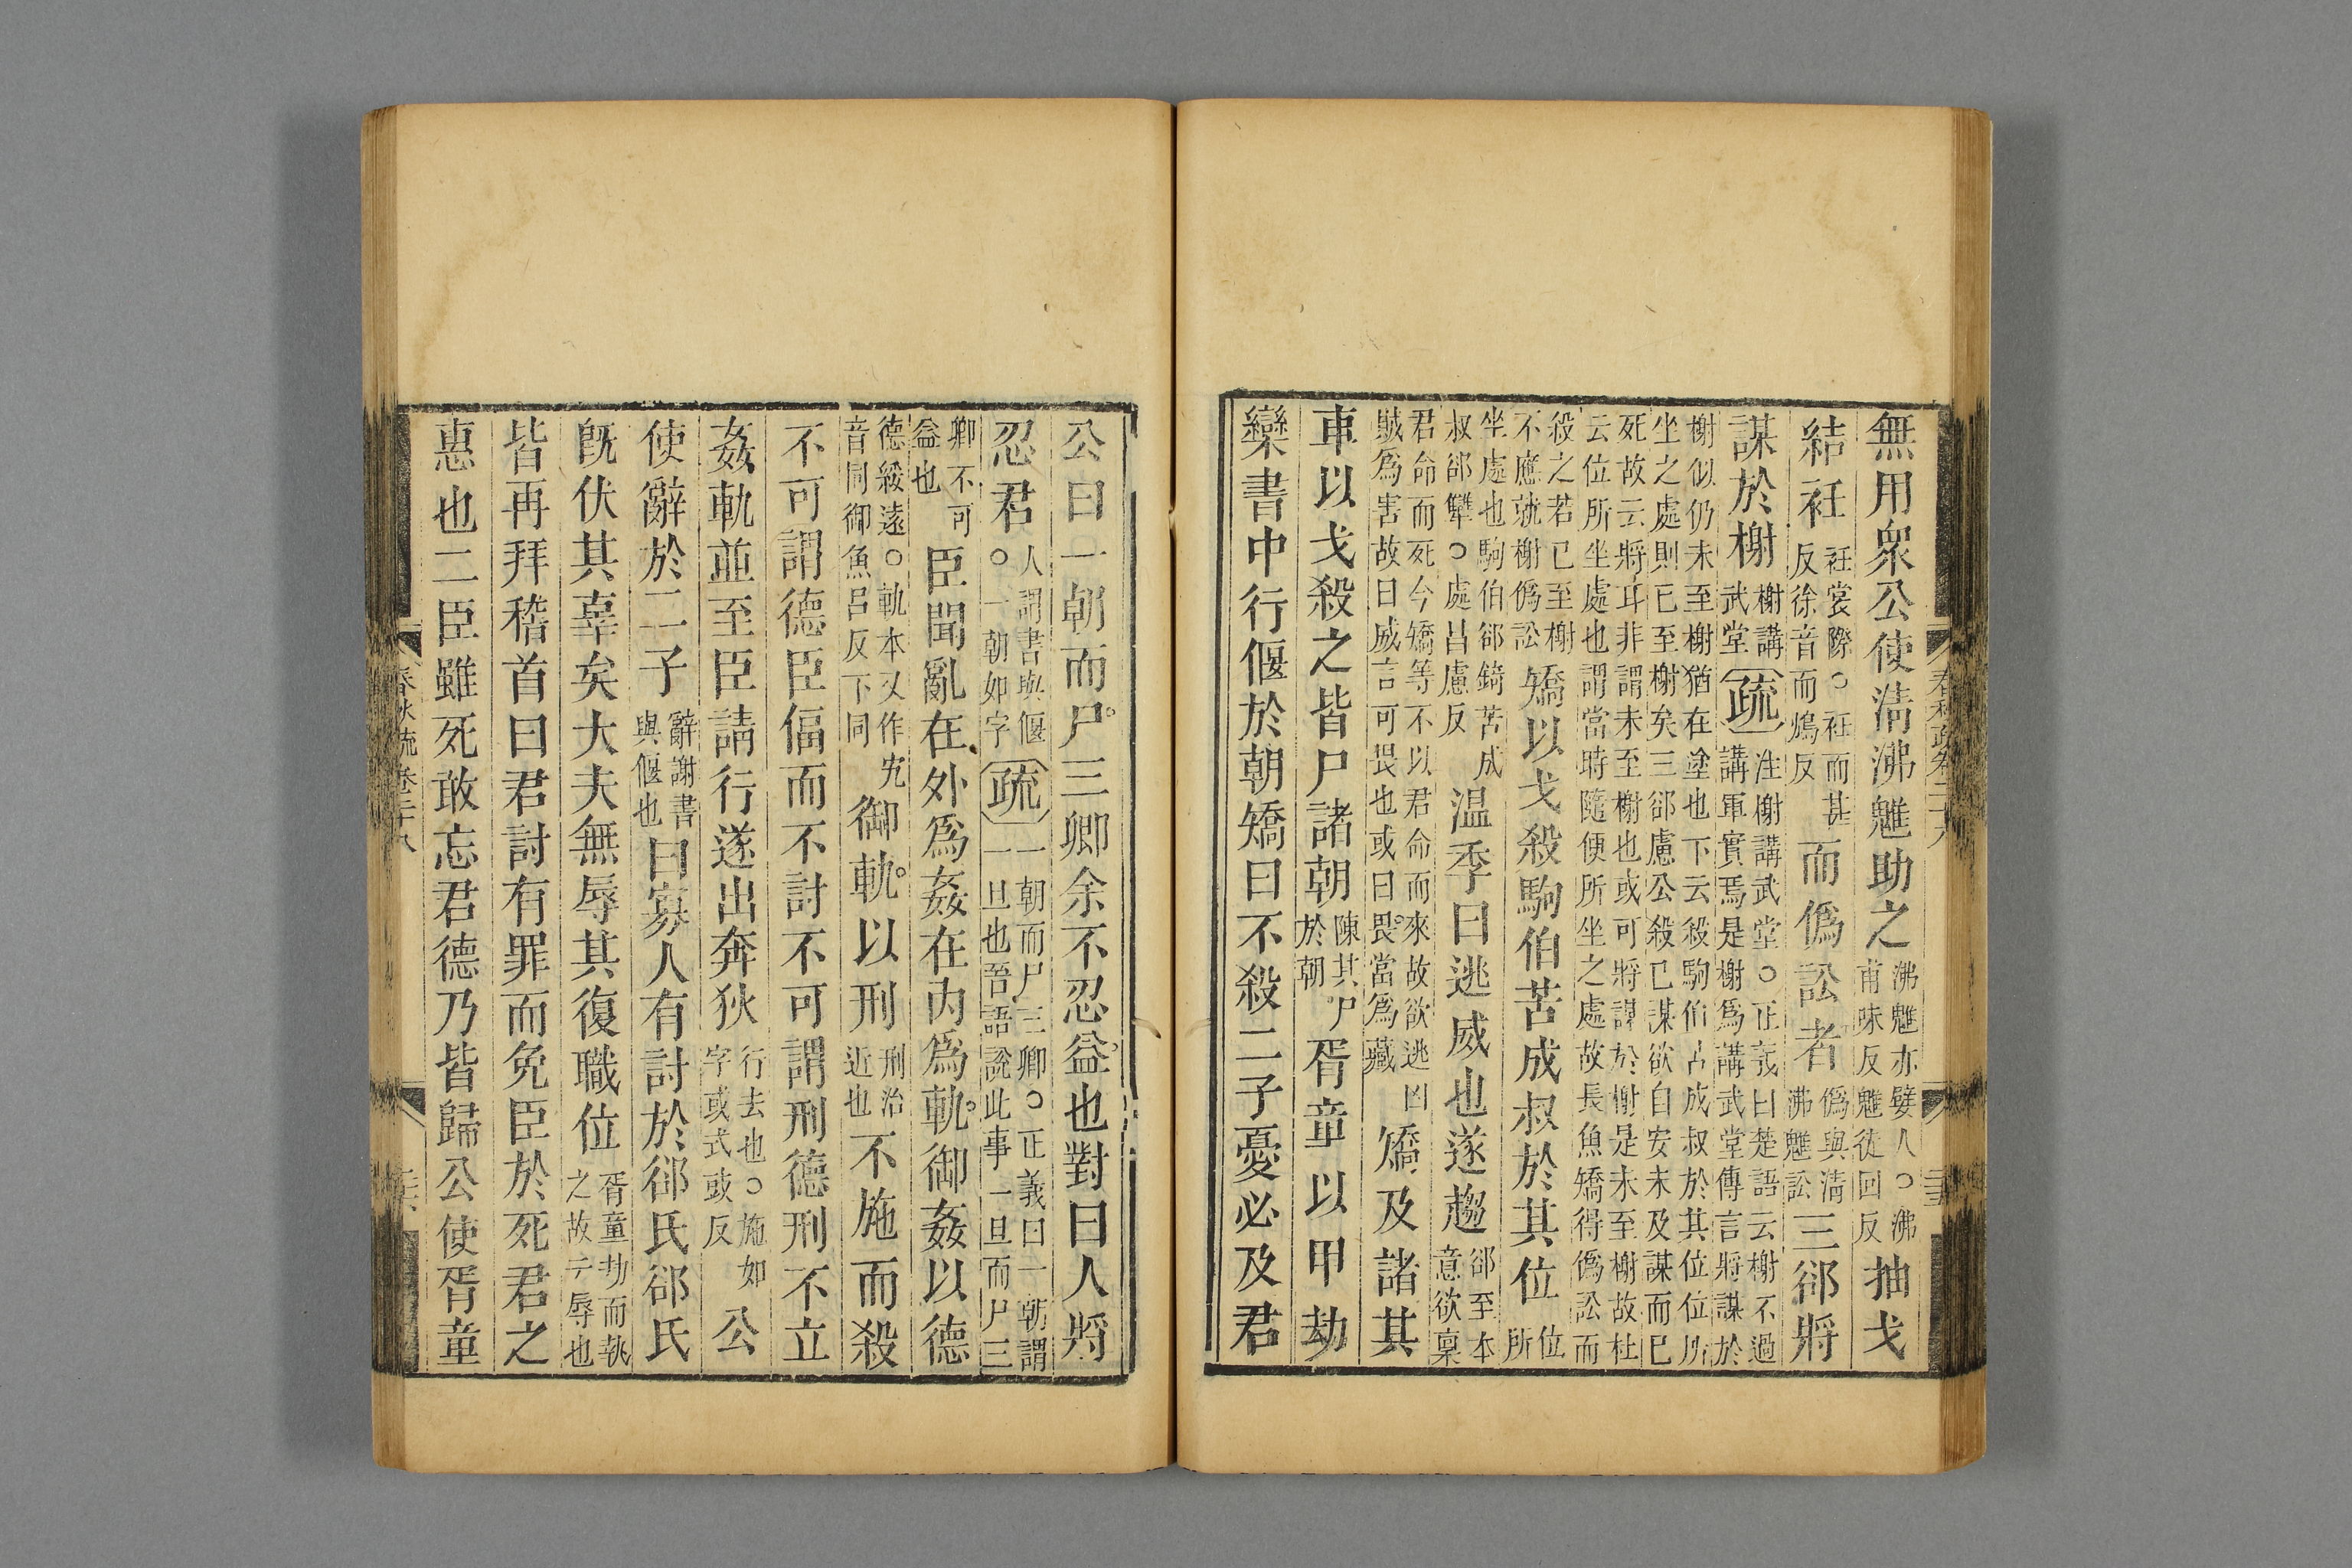 無用衆公使淸沸魋助之沸魋亦嬖人○沸甫味反魋徒回反抽戈
結衽衽裳際○衽而甚反徐音而鴆反而僞訟者僞與淸沸魋訟三郤將
謀於榭榭講武堂疏注榭講武堂○正義曰楚語云榭不過講軍實焉是榭爲講武堂傳言將謀於
榭似仍未至榭猶在塗也下云殺駒伯苦成叔於其位位所坐之處則已至榭矣三郤慮公殺已謀欲自安未及謀而已
死故云將耳非謂未至榭也或可將謀於榭是未至榭故杜云位所坐處也謂當時隨便所坐之處故長魚矯得僞訟而
殺之若已至榭不應就榭僞訟矯以戈殺駒伯苦成叔於其位位所
坐處也駒伯郤錡苦成叔郤犨○處昌慮反温季曰逃威也遂趨郤至本意欲稟
君命而死今矯等不以君命而來故欲逃凶賊爲害故曰威言可畏也或曰畏當爲藏矯及諸其
車以戈殺之皆尸諸朝陳其尸於朝胥童以甲劫
欒書中行偃於朝矯曰不殺二子憂必及君
公曰一朝而尸三卿余不忍益也對曰人將
忍君人謂書與偃○一朝如字疏一朝而尸三卿○正義曰一朝謂一旦也晉語說此事一旦而尸三
卿不可益也臣聞亂在外爲姦在内爲軌御姦以德
德綏遠○軌本又作宄音同御魚呂反下同御軌以刑刑治近也不施而殺
不可謂德臣偪而不討不可謂刑德刑不立
姦軌並至臣請行遂出奔狄行去也○施如字或式豉反公
使辭於二子辭謝書與偃也曰寡人有討於郤氏郤氏
旣伏其辜矣大夫無辱其復職位胥童劫而執之故云辱也
皆再拜稽首曰君討有罪而免臣於死君之
惠也二臣雖死敢忘君德乃皆歸公使胥童
春秋疏卷二十八